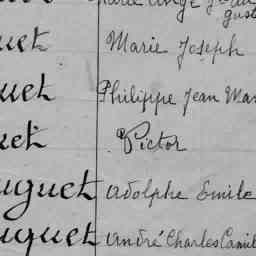 gust
uet Marie Joseph
uet Philippe Jean Mar
uet Victor
uguet Adolphe Emile
uguet André Charles Camil